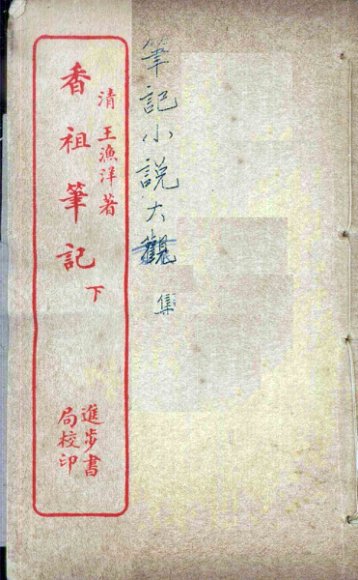 筆記小說大觀 集
清 王漁洋著
香祖筆記 下
進步書
局校印